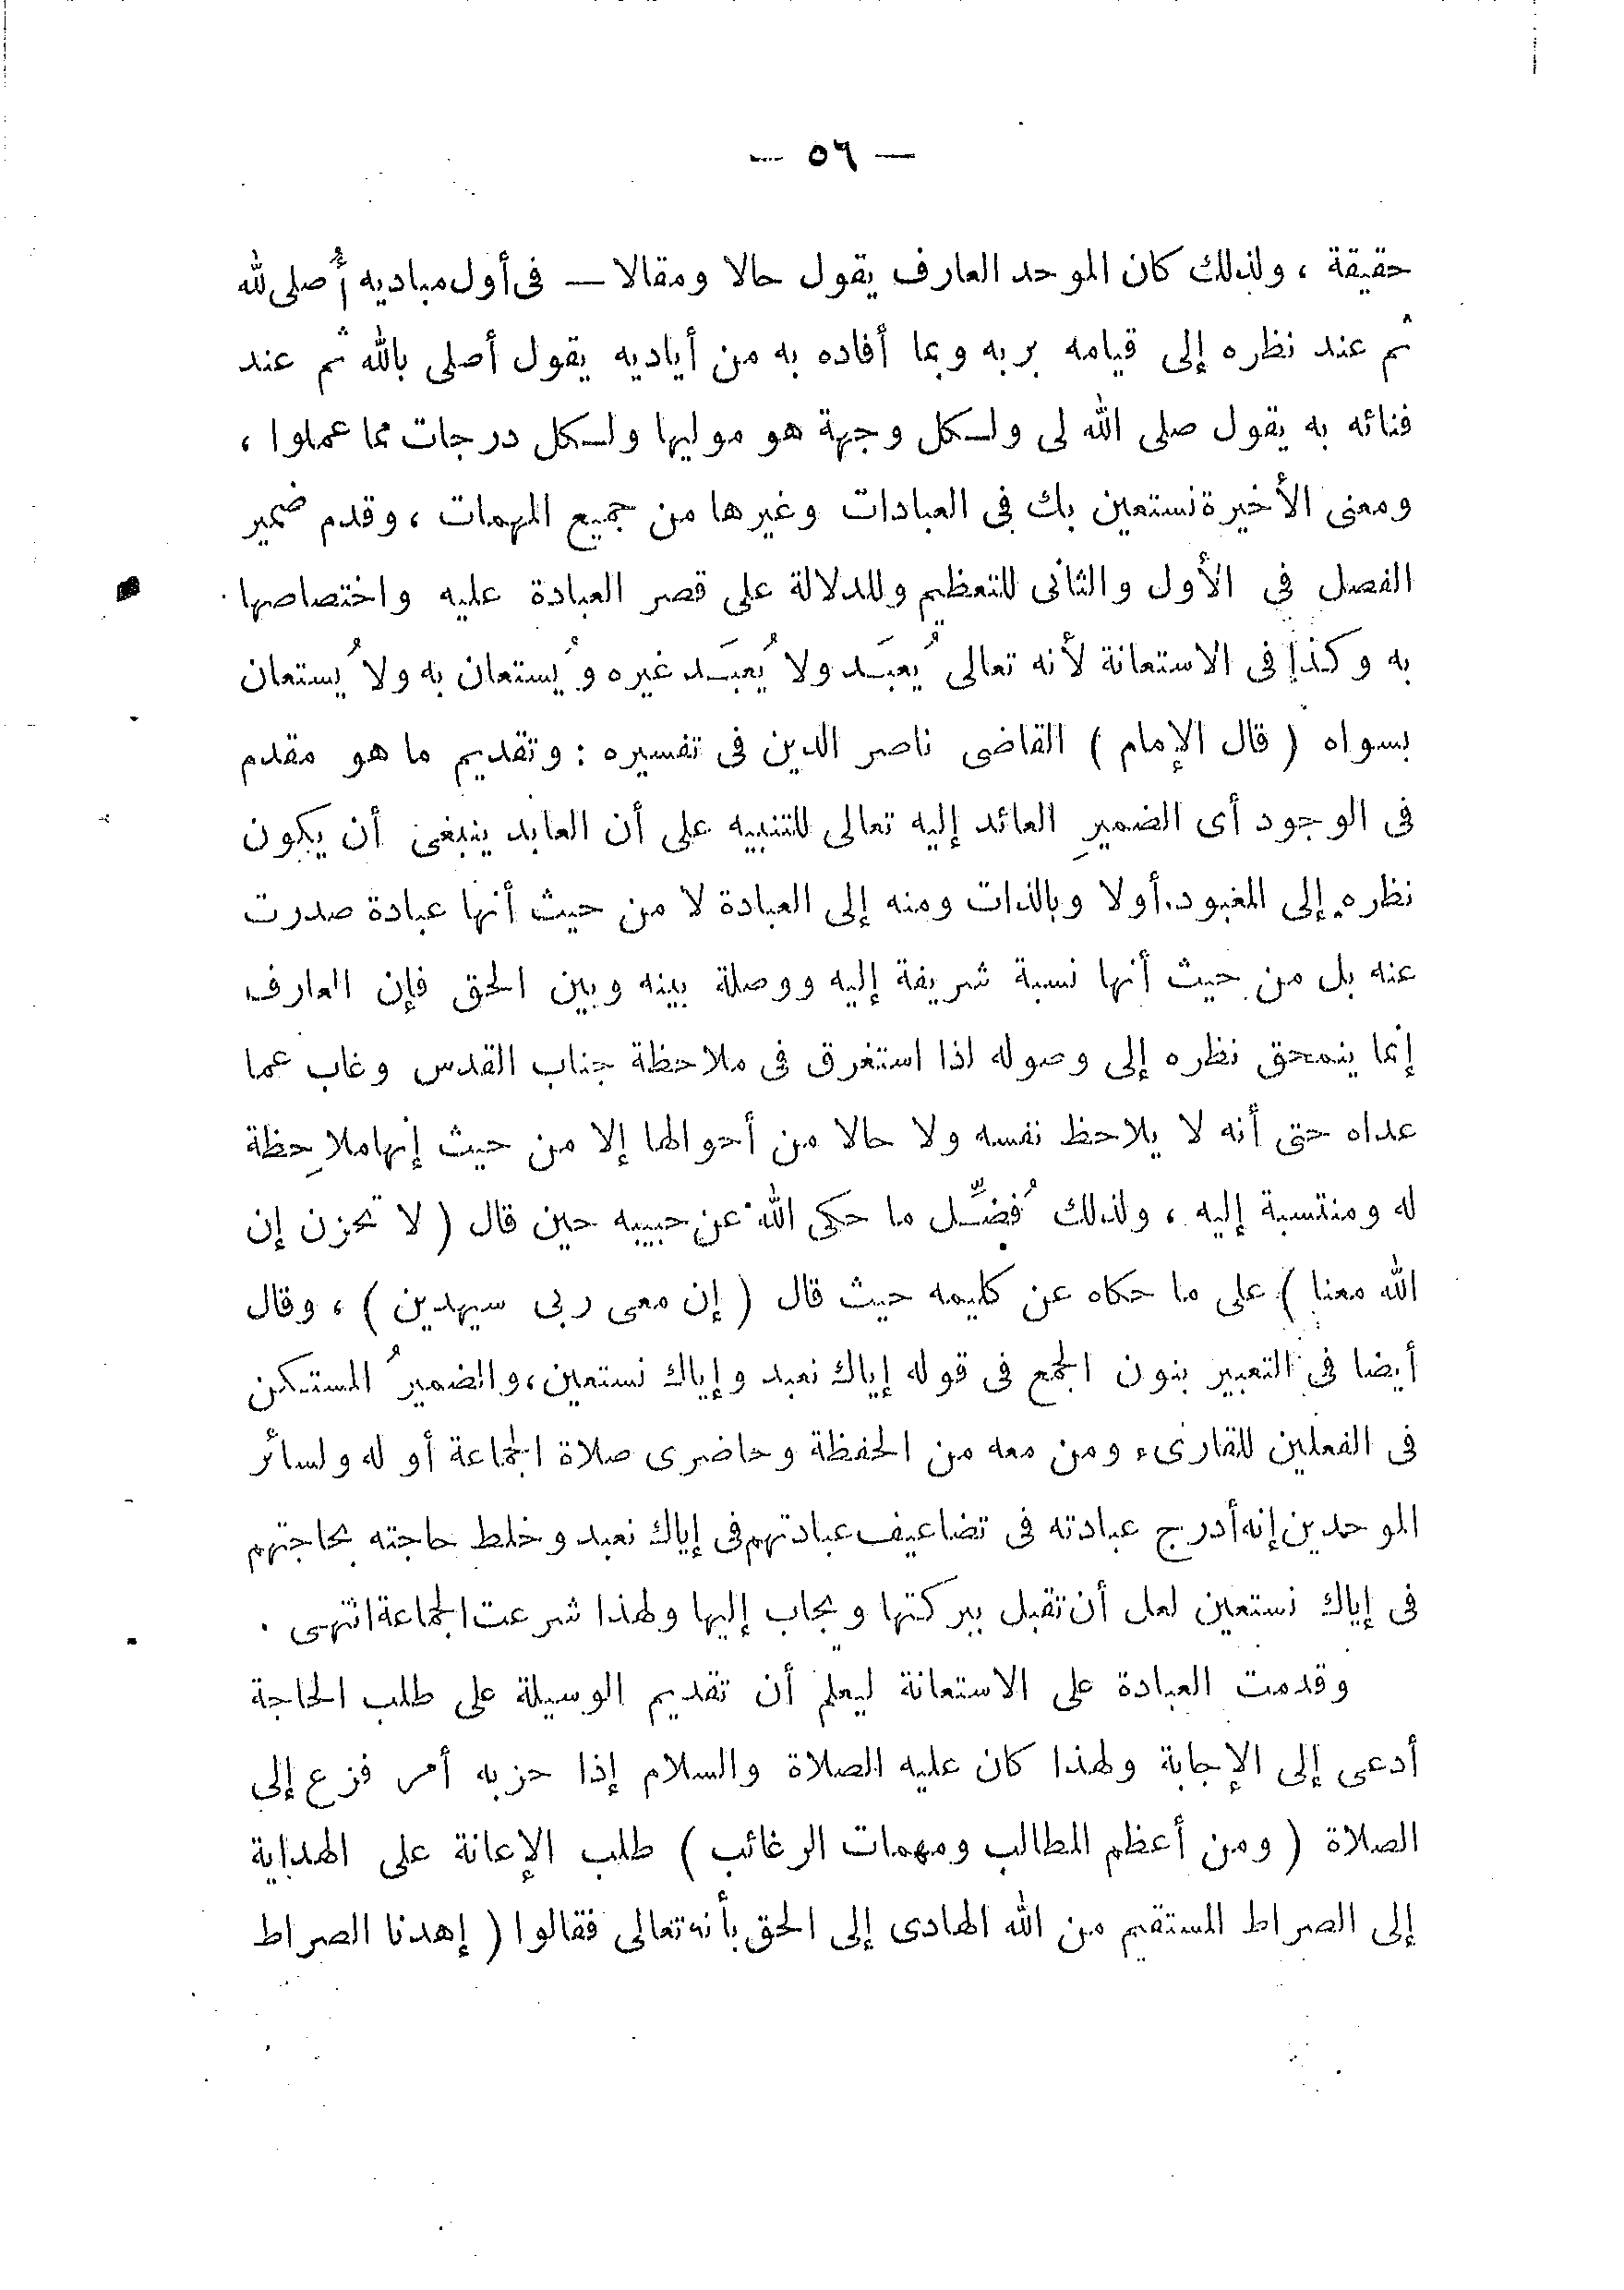 — ٥٦ —
حقيقة ، ولذلك كان الموحد العارف يقول حالا ومقالا — فى أول مباديه أُصلى لله
ثم عند نظره إلى قيامه بربه وبما أفاده به من أياديه يقول أصلى بالله ثم عند
فنائه به يقول صلى الله لى ولكل وجهة هو موليها ولكل درجات مما عملوا ،
ومعنى الأخيرة نستعين بك فى العبادات وغيرها من جميع المهمات ، وقدم ضمير
الفصل فى الأول والثانى للتعظيم وللدلالة على قصر العبادة عليه واختصاصها
به وكذا فى الاستعانة لأنه تعالى يُعبَد ولا يُعبَد غيره ويُستعان به ولا يُستعان
بسواه ( قال الإمام ) القاضى ناصر الدين فى تفسيره : وتقديم ما هو مقدم
فى الوجود أى الضميرِ العائد إليه تعالى للتنبيه على أن العابد ينبغى أن يكون
نظره إلى المعبود أولا وبالذات ومنه إلى العبادة لا من حيث أنها عبادة صدرت
عنه بل من حيث أنها نسبة شريفة إليه ووصلة بينه وبين الحق فإن العارف
إنما ينمحق نظره إلى وصوله اذا استغرق فى ملاحظة جناب القدس وغاب عما
عداه حتى أنه لا يلاحظ نفسه ولا حالا من أحوالها إلا من حيث إنها ملاحِظة
له ومنتسبة إليه ، ولذلك فُضِّل ما حكى الله عن حبيبه حين قال ( لا تحزن إن
الله معنا ) على ما حكاه عن كليمه حيث قال ( إن معى ربى سيهدين ) ، وقال
أيضا فى التعبير بنون الجمع فى قوله إياك نعبد وإياك نستعين ، والضميرُ المستكن
فى الفعلين للقارىء ومن معه من الحفظة وحاضرى صلاة الجماعة أو له ولسائر
الموحدين إنه أدرج عبادته فى تضاعيف عبادتهم فى إياك نعبد وخلط حاجته بحاجتهم
فى إياك نستعين لعل أن تقبل ببركتها ويجاب إليها ولهذا شرعت الجماعة انتهى .
وقدمت العبادة على الاستعانة ليعلم أن تقديم الوسيلة على طلب الحاجة
أدعى إلى الإجابة ولهذا كان عليه الصلاة والسلام إذا حزبه أمر فزع إلى
الصلاة ( ومن أعظم المطالب ومهمات الرغائب ) طلب الإعانة على الهداية
إلى الصراط المستقيم من الله الهادى إلى الحق بأنه تعالى فقالوا ( إهدنا الصراط